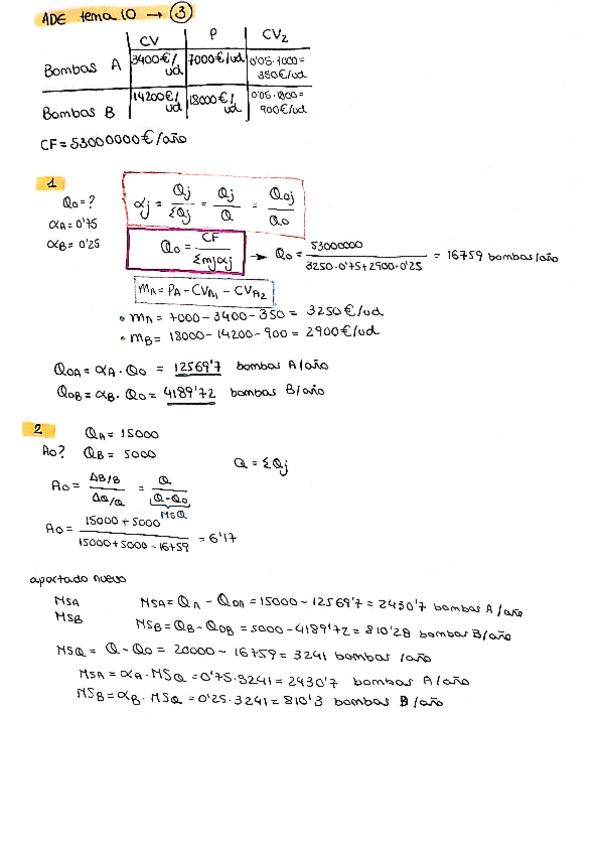 ADE tema 10 → 3
CV P CV2
Bombas A 3400€/ud 7000€/ud 0'05·7000=350€/ud
Bombas B 14200€/ud 18000€/ud 0'05·1800=900€/ud
CF=53000000€/año
1
Qo=?
αA=0'75
αB=0'25
αj = Qj/ΣQj = Qj/Q = Qoj/Qo
Qo = CF/Σmjαj → Qo = 53000000/3250·0'75+2900·0'25 = 16759 bombas/año
mA = PA - CVA1 - CVA2
• mA = 7000-3400-350 = 3250€/ud
• mB = 18000-14200-900 = 2900€/ud
QOA = αA·Qo = 12569'7 bombas A/año
QOB = αB·Qo = 4189'72 bombas B/año
2
QA = 15000
Ao? QB = 5000
Q = ΣQj
Ao = ΔB/B / ΔQ/Q = Q / Q-Qo
MSQ
Ao = 15000+5000 / 15000+5000-16759 = 6'17
apartado nuevo
MSA MSA = QA - QOA = 15000-12569'7 = 2430'7 bombas A/año
MSB MSB = QB - QOB = 5000-4189'72 = 810'28 bombas B/año
MSQ = Q-Qo = 20000-16759 = 3241 bombas /año
MSA = αA·MSQ = 0'75·3241 = 2430'7 bombas A/año
MSB = αB·MSQ = 0'25·3241 = 810'3 bombas B/año